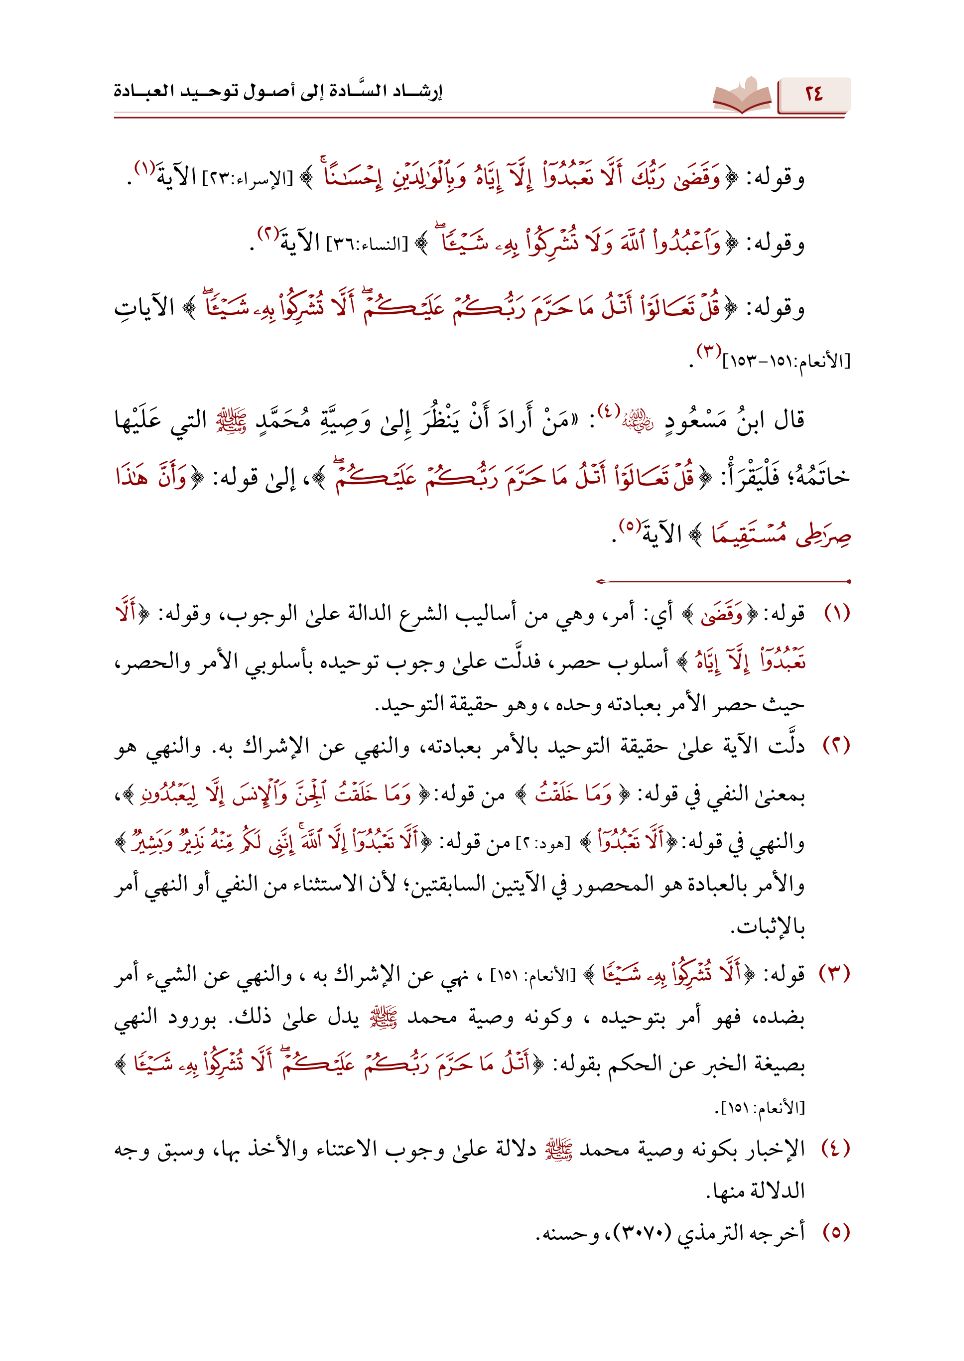 إرشــاد السَّــادة إلى أصــول توحــيد العبــادة
٢٤
وقوله: ﴿ وَقَضَىٰ رَبُّكَ أَلَّا تَعْبُدُوٓا۟ إِلَّآ إِيَّاهُ وَبِٱلْوَٰلِدَيْنِ إِحْسَـٰنًا ۚ ﴾ [الإسراء:٢٣] الآيةَ(١).
وقوله: ﴿ وَٱعْبُدُوا۟ ٱللَّهَ وَلَا تُشْرِكُوا۟ بِهِۦ شَيْـًٔا ۖ ﴾ [النساء:٣٦] الآيةَ(٢).
وقوله: ﴿ قُلْ تَعَالَوْا۟ أَتْلُ مَا حَرَّمَ رَبُّكُمْ عَلَيْكُمْ ۖ أَلَّا تُشْرِكُوا۟ بِهِۦ شَيْـًٔا ۖ ﴾ الآياتِ
[الأنعام:١٥١-١٥٣](٣).
قال ابنُ مَسْعُودٍ ﵁(٤): «مَنْ أَرادَ أَنْ يَنْظُرَ إِلىٰ وَصِيَّةِ مُحَمَّدٍ ﷺ التي عَلَيْها
خاتَمُهُ؛ فَلْيَقْرَأْ: ﴿ قُلْ تَعَالَوْا۟ أَتْلُ مَا حَرَّمَ رَبُّكُمْ عَلَيْكُمْ ۖ ﴾، إلىٰ قوله: ﴿ وَأَنَّ هَـٰذَا
صِرَٰطِى مُسْتَقِيمًا ﴾ الآيةَ(٥).
(١) قوله: ﴿ وَقَضَىٰ ﴾ أي: أمر، وهي من أساليب الشرع الدالة علىٰ الوجوب، وقوله: ﴿ أَلَّا
تَعْبُدُوٓا۟ إِلَّآ إِيَّاهُ ﴾ أسلوب حصر، فدلَّت علىٰ وجوب توحيده بأسلوبي الأمر والحصر،
حيث حصر الأمر بعبادته وحده ، وهو حقيقة التوحيد.
(٢) دلَّت الآية علىٰ حقيقة التوحيد بالأمر بعبادته، والنهي عن الإشراك به. والنهي هو
بمعنىٰ النفي في قوله: ﴿ وَمَا خَلَقْتُ ﴾ من قوله:﴿ وَمَا خَلَقْتُ ٱلْجِنَّ وَٱلْإِنسَ إِلَّا لِيَعْبُدُونِ ﴾،
والنهي في قوله:﴿ أَلَّا تَعْبُدُوٓا۟ ﴾ [هود:٢] من قوله: ﴿ أَلَّا تَعْبُدُوٓا۟ إِلَّا ٱللَّهَ ۚ إِنَّنِى لَكُم مِّنْهُ نَذِيرٌ وَبَشِيرٌ ﴾
والأمر بالعبادة هو المحصور في الآيتين السابقتين؛ لأن الاستثناء من النفي أو النهي أمر
بالإثبات.
(٣) قوله: ﴿ أَلَّا تُشْرِكُوا۟ بِهِۦ شَيْـًٔا ﴾ [الأنعام: ١٥١] ، نهي عن الإشراك به ، والنهي عن الشيء أمر
بضده، فهو أمر بتوحيده ، وكونه وصية محمد ﷺ يدل علىٰ ذلك. بورود النهي
بصيغة الخبر عن الحكم بقوله: ﴿ أَتْلُ مَا حَرَّمَ رَبُّكُمْ عَلَيْكُمْ ۖ أَلَّا تُشْرِكُوا۟ بِهِۦ شَيْـًٔا ﴾
[الأنعام: ١٥١].
(٤) الإخبار بكونه وصية محمد ﷺ دلالة علىٰ وجوب الاعتناء والأخذ بها، وسبق وجه
الدلالة منها.
(٥) أخرجه الترمذي (٣٠٧٠)، وحسنه.